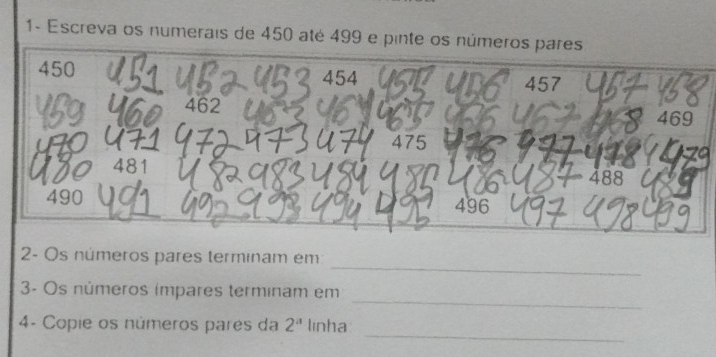 1- Escreva os numerais de 450 até 499 e pinte os números pares
450 451 452 453 454 455 456 457 457 458
459 460 462 463 464 465 466 467 468 469
470 471 472 473 474 475 476 477 478 479
480 481 482 483 484 485 486 487 488 489
490 491 492 493 494 495 496 497 498 499
2- Os números pares terminam em
3- Os números ímpares terminam em
4- Copie os números pares da 2ª linha